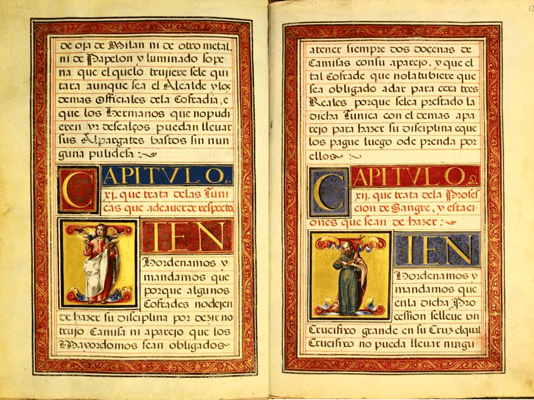 de oja de Milan ni de otro metal,
ni de Papelon y luminado so pe
na que el que lo trujiere sele qui
tara aunque sea el Alcalde y los
demas officiales dela Cofradia, e
que los Hermanos que no pudi
eren yr descalços puedan lleuar
sus Alpargates bastos sin nin
guna pulideza
CAPITVLO
xj. que trata delas Tuni
cas que a de auer de respecto.
ITEN
Hordenamos y
mandamos que
porque algunos
Cofrades no dejen
de hazer su disciplina por dezir no
trujo Camisa ni aparejo que los
Mayordomos sean obligados
atener siempre dos docenas de
Camisas con su aparejo, y que el
tal Cofrade que no la tubiere que
sea obligado a dar para cera tres
Reales porque selea prestado la
dicha Tunica con el demas apa
rejo para hazer su disciplina e que
los pague luego o de prenda por
ellos
CAPITVLO
xij. que trata dela Proses
cion de Sangre, y estaci
ones que sean de hazer:
ITEN
Hordenamos y
mandamos que
en la dicha Pro
cession se lleue vn
Crucifixo grande en su Cruz el qual
Crucifixo no pueda lleuar ningu